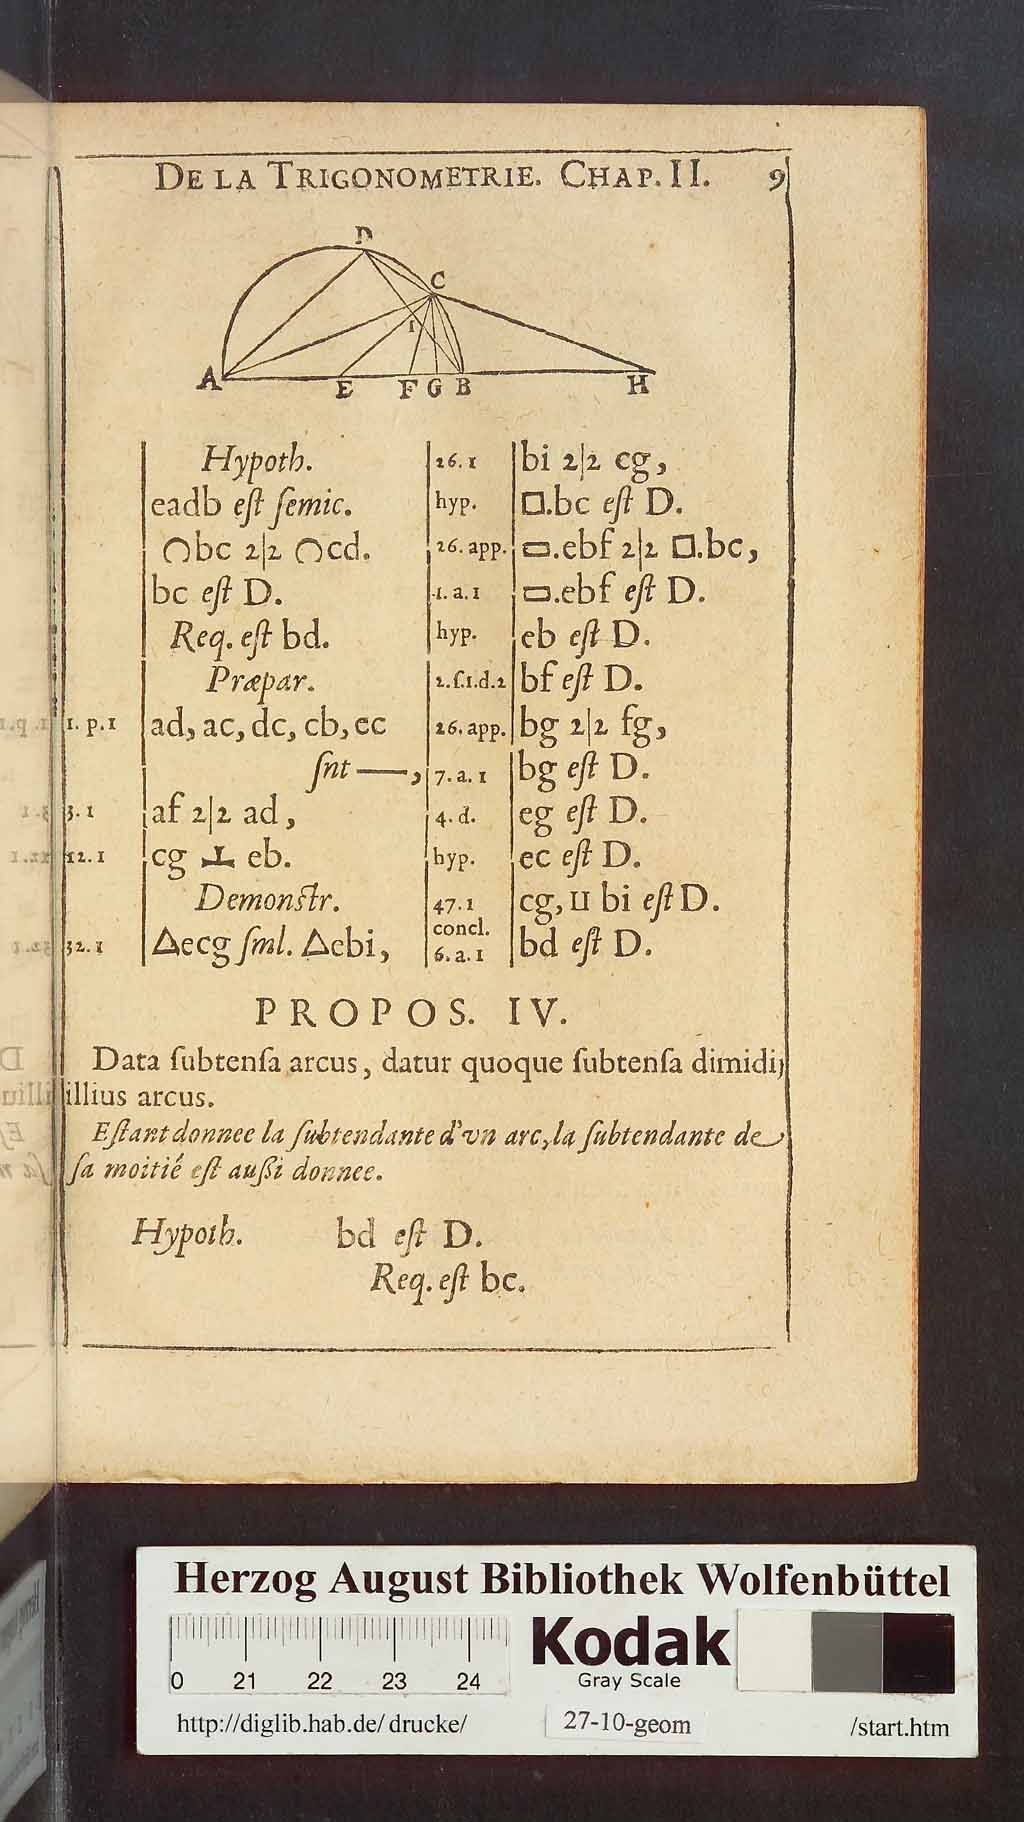 DE LA TRIGONOMETRIE. CHAP. II. 9
D
C
I
A E F G B H
Hypoth.
eadb eſt ſemic.
◠bc 2|2 ◠cd.
bc eſt D.
Req. eſt bd.
Præpar.
1. p. 1 ad, ac, dc, cb, ec
ſnt —,
3. 1 af 2|2 ad,
12. 1 cg ⊥ eb.
Demonſtr.
32. 1 △ecg ſml. △ebi,
26. 1 bi 2|2 cg,
hyp. □.bc eſt D.
26. app. ▭.ebf 2|2 □.bc,
1. a. 1 ▭.ebf eſt D.
hyp. eb eſt D.
2. ſ.1.d.2 bf eſt D.
26. app. bg 2|2 fg,
7. a. 1 bg eſt D.
4. d. eg eſt D.
hyp. ec eſt D.
47. 1 cg, II bi eſt D.
concl.
6. a. 1 bd eſt D.
PROPOS. IV.
Data ſubtenſa arcus, datur quoque ſubtenſa dimidij
illius arcus.
Eſtant donnee la ſubtendante d'vn arc, la ſubtendante de
ſa moitié eſt außi donnee.
Hypoth. bd eſt D.
Req. eſt bc.
Herzog August Bibliothek Wolfenbüttel
0 21 22 23 24
Kodak
Gray Scale
http://diglib.hab.de/drucke/ 27-10-geom /start.htm